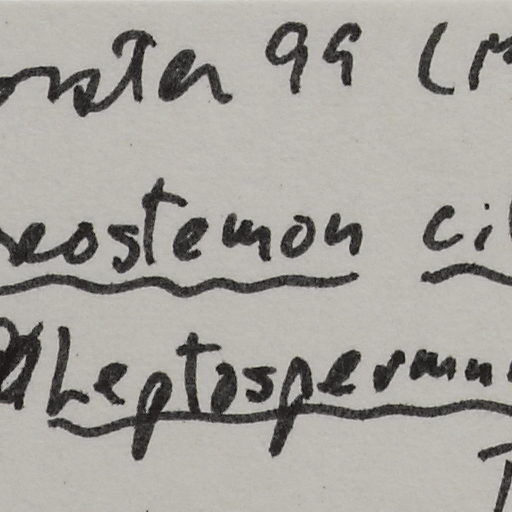 orster 99 (
eostemon ci
Leptospermum